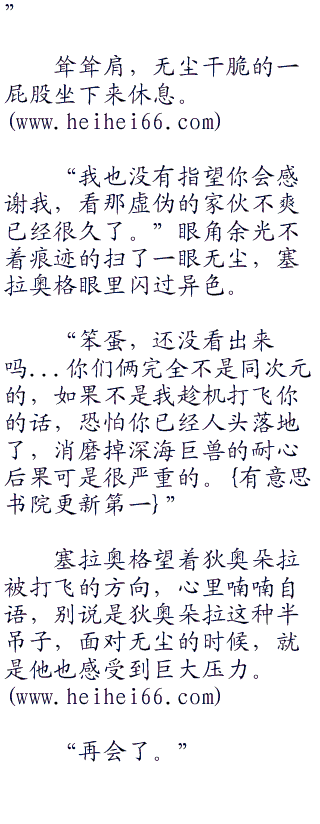 ”
耸耸肩，无尘干脆的一
屁股坐下来休息。
(www.heihei66.com)
“我也没有指望你会感
谢我，看那虚伪的家伙不爽
已经很久了。”眼角余光不
着痕迹的扫了一眼无尘，塞
拉奥格眼里闪过异色。
“笨蛋，还没看出来
吗...你们俩完全不是同次元
的，如果不是我趁机打飞你
的话，恐怕你已经人头落地
了，消磨掉深海巨兽的耐心
后果可是很严重的。{有意思
书院更新第一}”
塞拉奥格望着狄奥朵拉
被打飞的方向，心里喃喃自
语，别说是狄奥朵拉这种半
吊子，面对无尘的时候，就
是他也感受到巨大压力。
(www.heihei66.com)
“再会了。”